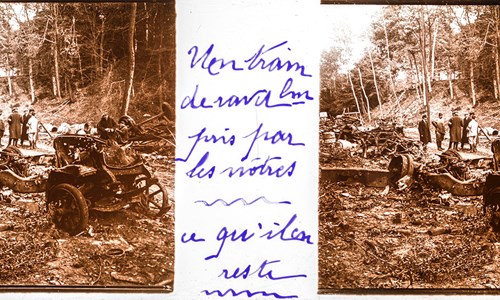 Un train
de ravd lm
pris par
les nôtres
ce qu'il en
reste